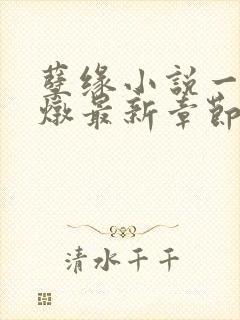 孽缘小說一
燉最新章節
清水千千